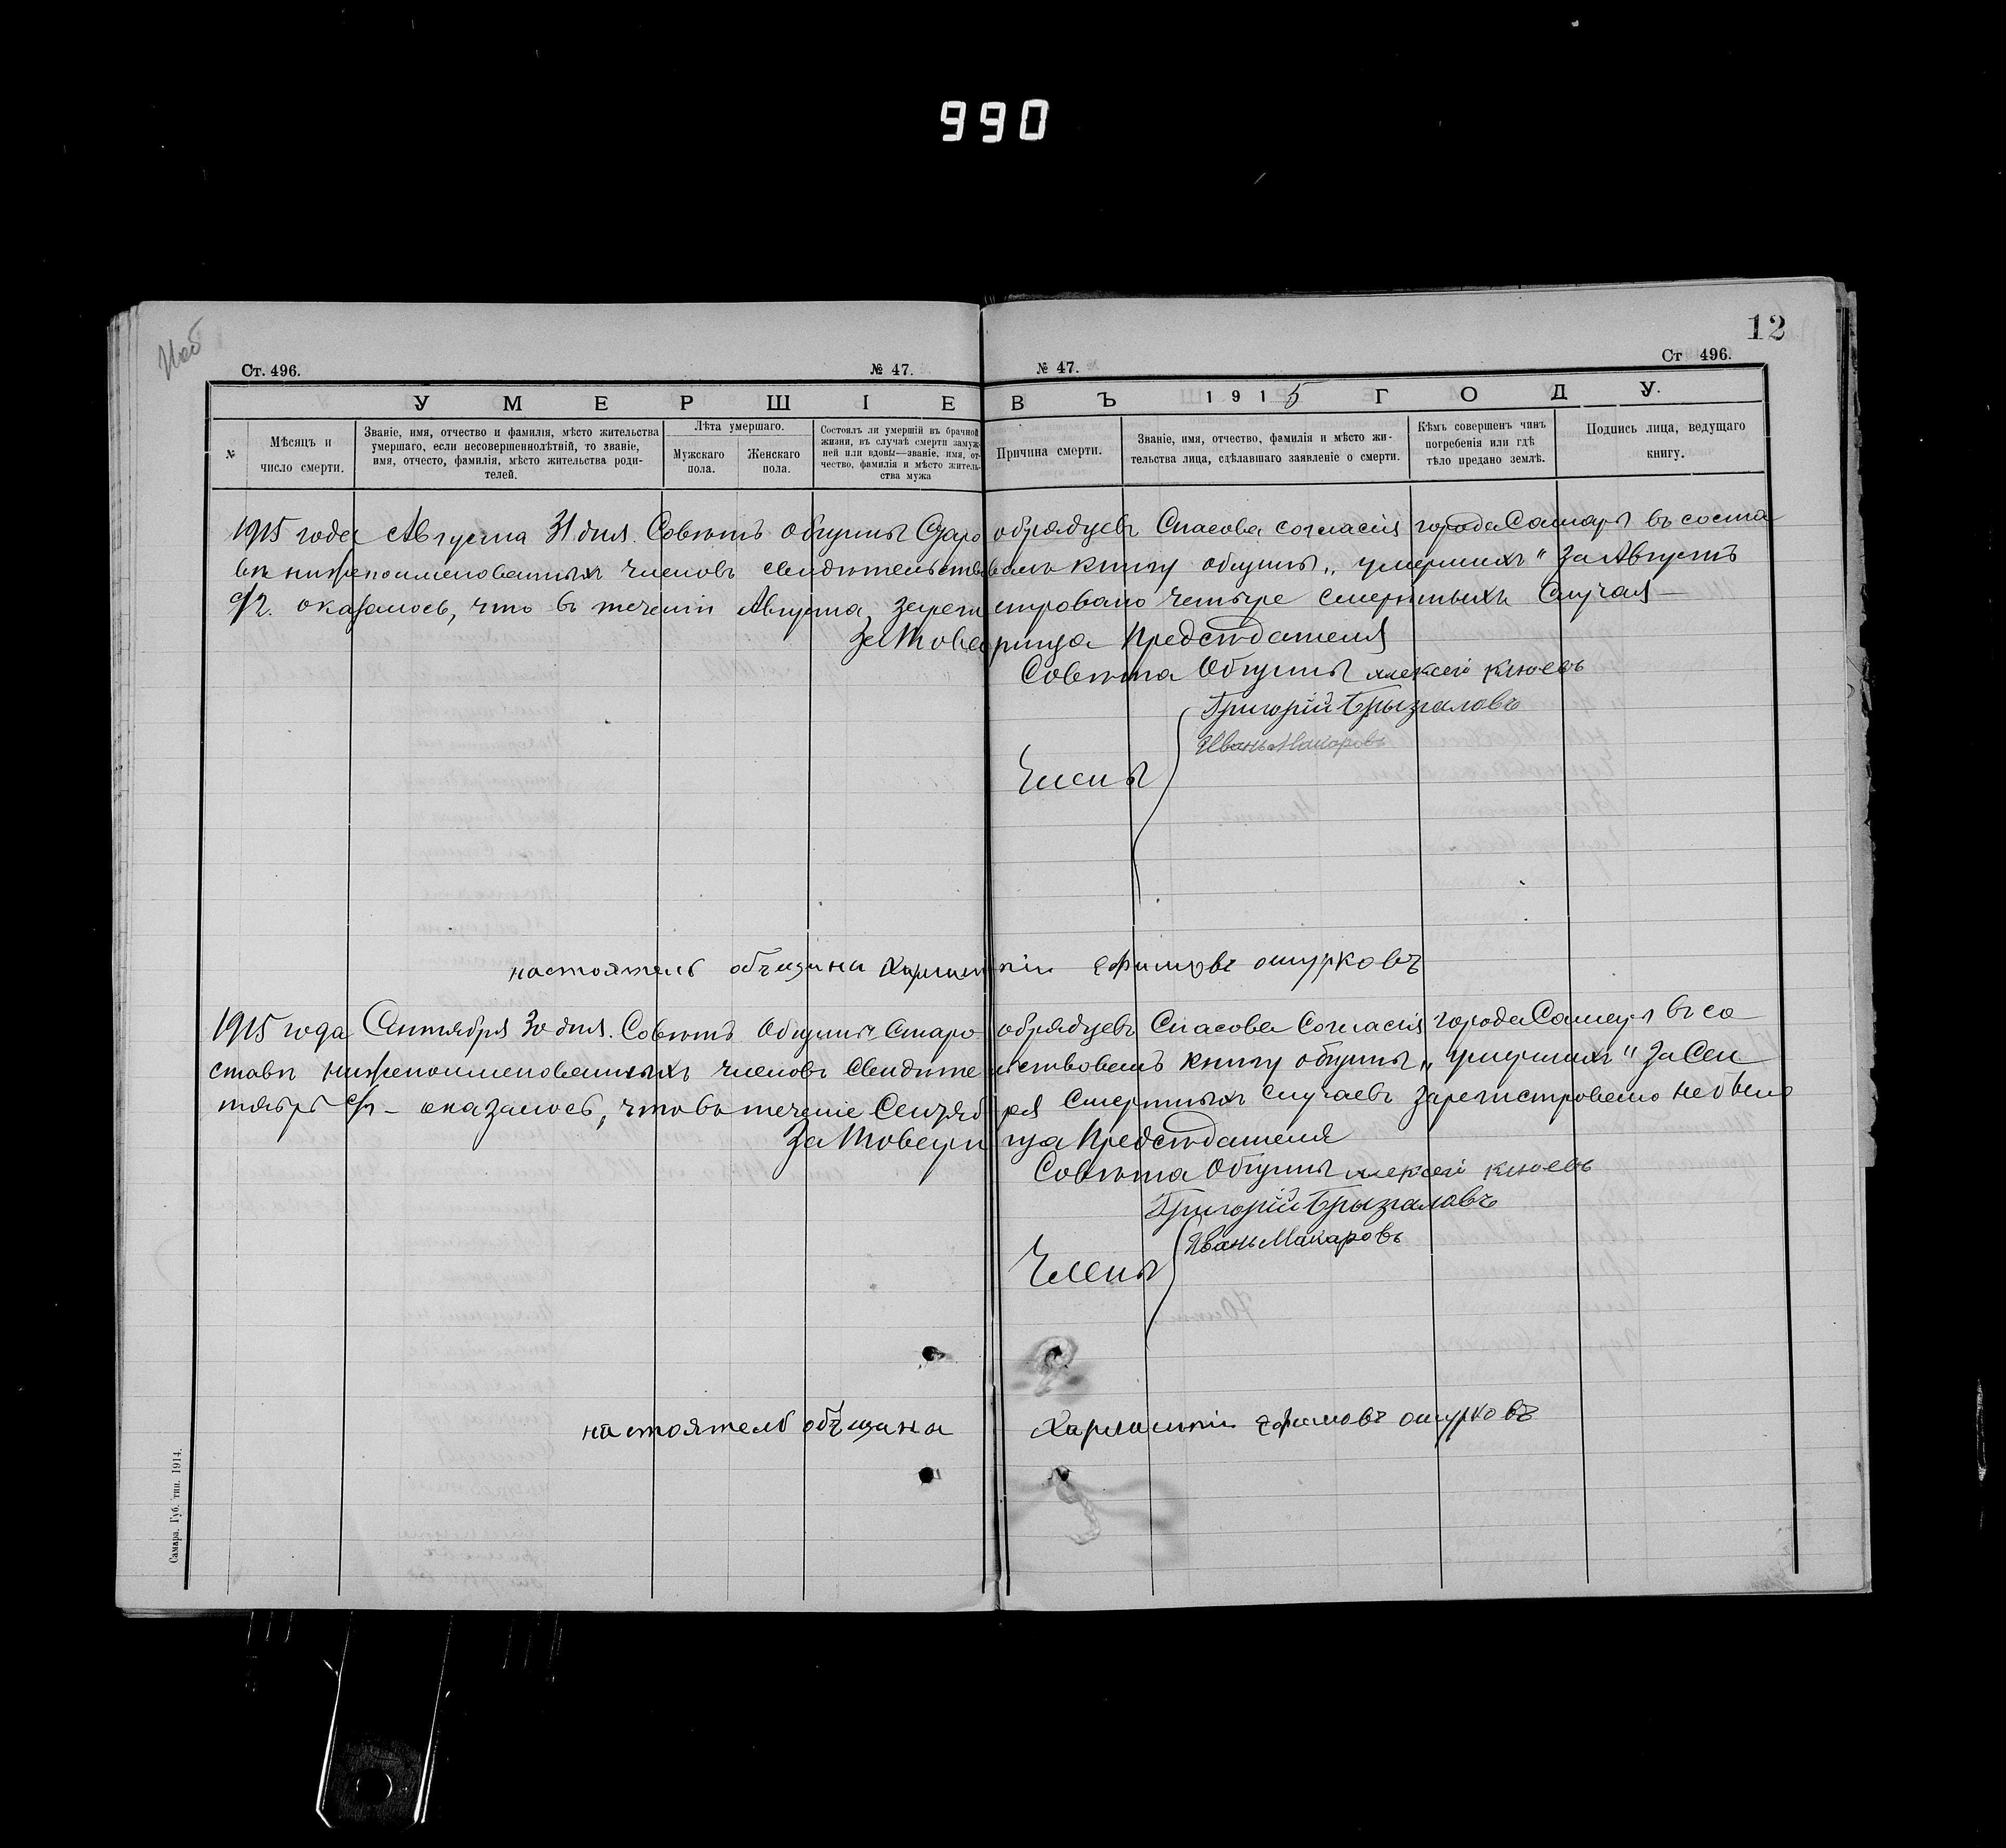 990
12
Ст. 496.
№ 47.
№ 47.
Ст 496.
УМЕРШІЕ ВЪ 1915 ГОДУ.
№
Мѣсяцъ и число смерти.
Званіе, имя, отчество и фамилія, мѣсто жительства умершаго, если несовершеннолѣтній, то званіе, имя, отчесто, фамилія, мѣсто жительства родителей.
Лѣта умершаго.
Мужскаго пола.
Женскаго пола.
Состоялъ ли умершій въ брачной жизни, въ случаѣ смерти замужней или вдовы—званіе, имя, отчество, фамилія и мѣсто жительства мужа
Причина смерти.
Званіе, имя, отчество, фамилія и мѣсто жительства лица, сдѣлавшаго заявленіе о смерти.
Кѣмъ совершенъ чинъ погребенія или гдѣ тѣло предано землѣ.
Подпись лица, ведущаго книгу.
1915 года Августа 31 дня. Совѣтъ общины Старообрядцевъ Спасова согласія города Самары въ соста
вѣ нижепоименованныхъ членовъ свидѣтельствовалъ книгу общины „умершихъ" за Августъ
с/г. оказалось, что въ теченіи Августа зарегистровано четыре смертныхъ случая —
За Товарища Предсѣдателя
Совѣта Общины алексей клюевъ
Григорій Брызгаловъ
Иванъ Макаровъ
Члены
настоятель общины Харлампій ефимовъ ошурковъ
1915 года Сентября 30 дня. Совѣтъ Общины Старообрядцевъ Спасова Согласія города Самары въ со
ставѣ нижепоименованныхъ членовъ свидѣтельствовалъ книгу общины „умершихъ" за Сен
тябрь с/г — оказалось, что въ теченіе Сентября смертныхъ случаевъ зарегистровано не было
За Товарища Предсѣдателя
Совѣта Общины алексей клюевъ
Григорій Брызгаловъ
Иванъ Макаровъ
Члены
настоятель общины Харлампій ефимовъ ошурковъ
Самара. Губ. тип. 1914.